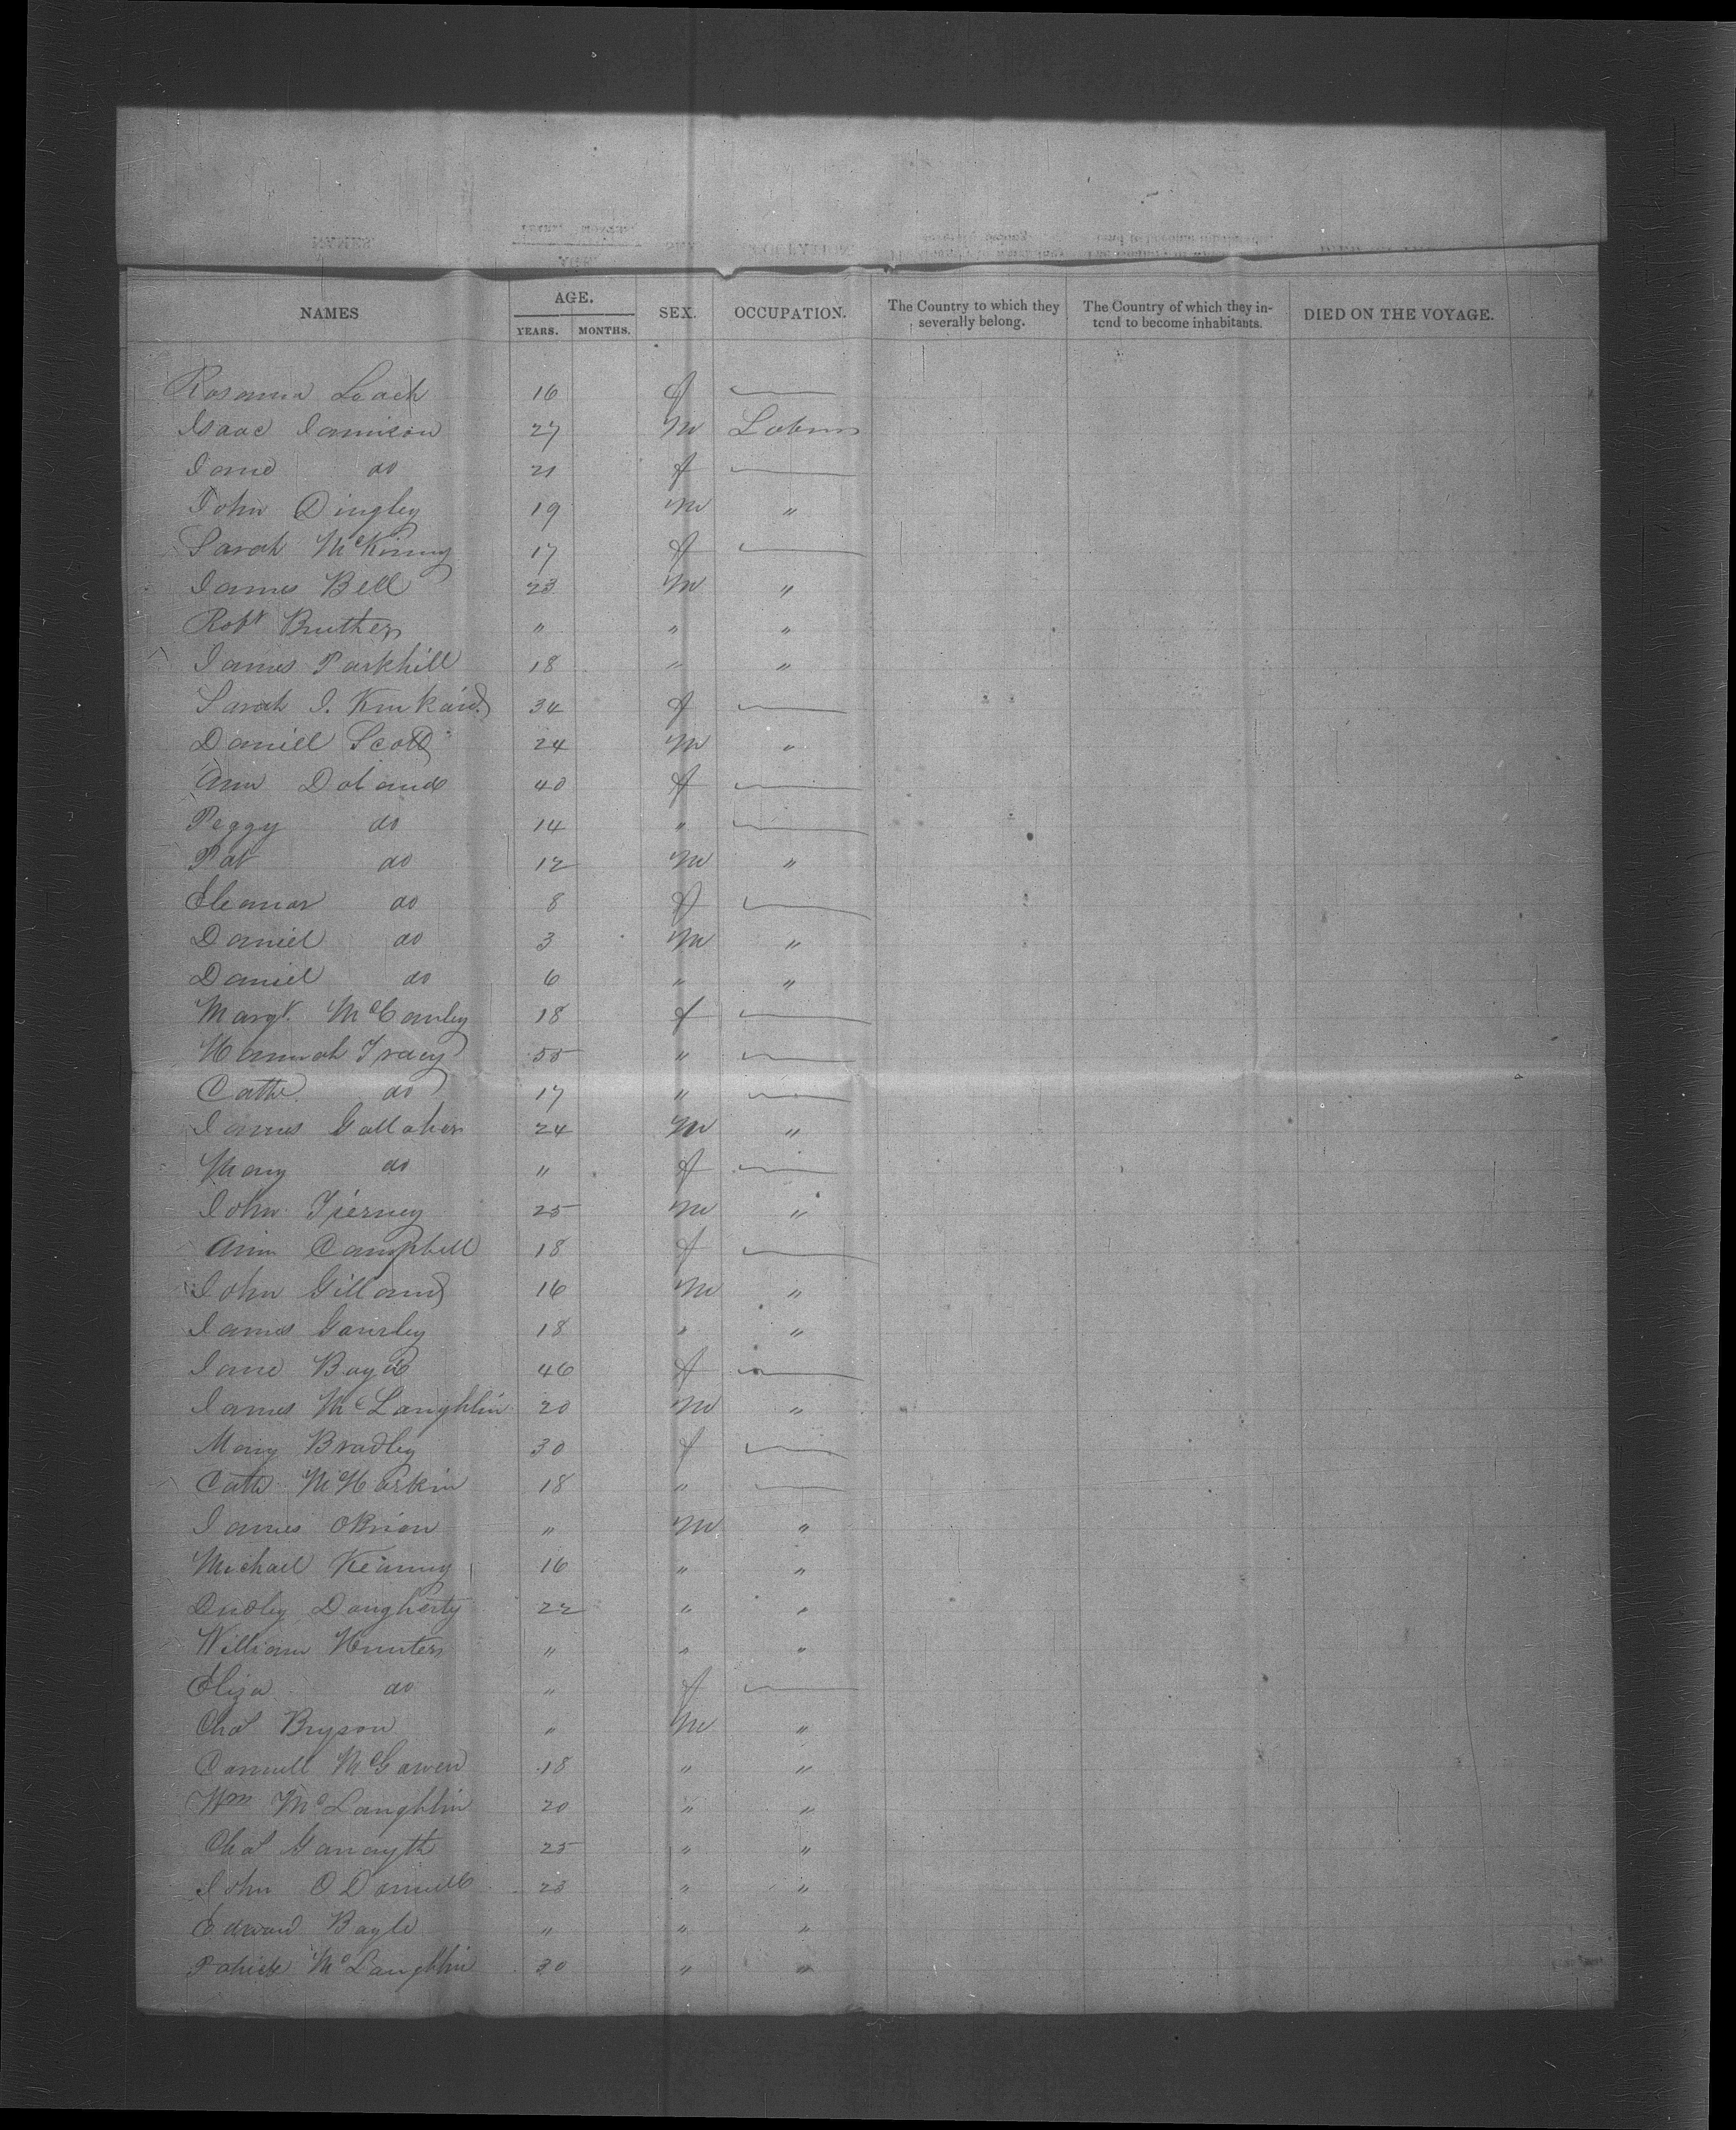 NAMES AGE. SEX. OCCUPATION. The Country to which they severally belong. The Country of which they intend to become inhabitants. DIED ON THE VOYAGE.
YEARS. MONTHS.
Rosanna Loach 16 f
Isaac Jamison 27 m
Jane do 21 f
John Dingley 19 m "
Sarah McKinny 17 f
James Bell 23 m "
Robt Bruther " " "
James Parkhill 18 " "
Sarah J. Kinkaid 34 f
Daniel Scott 24 m "
Ann Doland 40 f
Peggy do 14 "
Pat do 12 m "
Eleanor do 8 f
Daniel do 3 m "
Daniel do 6 " "
Margt. McCauley 18 f
Hannah Tracy 55 "
Cathe do 17 "
James Gallaher 24 m "
Mary do " f
John Tierney 25 m "
Ann Campbell 18 f
John Gilland 16 m "
James Gourley 18 " "
Jane Boyd 46 f
James McLaughlin 20 m "
Mary Bradley 30 f
Cath McHarkin 18 "
James OBrian " m "
Michael Kenny 16 " "
Dudley Dougherty 22 " "
William Hunter " " "
Eliza do " f
Chas Bryson " m "
Connell McGowen 18 " "
Wm McLaughlin 20 " "
Chas 25 " "
John O Donnell 23 " "
Edward Boyle " " "
Patrick McLaughlin 30 " "